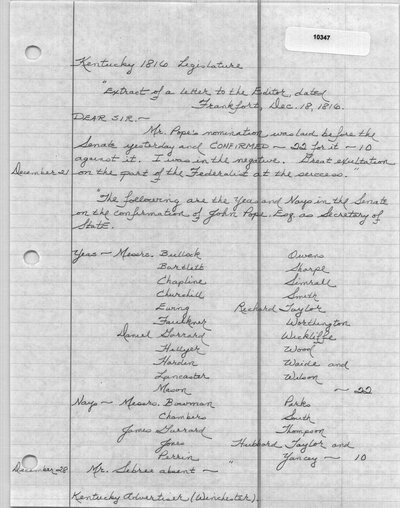 10347
Kentucky 1816 Legislature
"Extract of a letter to the Editor, dated
Frankfort, Dec. 18, 1816.
DEAR SIR ~
Mr. Pope's nomination was laid before the
Senate yesterday and CONFIRMED ~ 22 for it ~ 10
against it. I was in the negative. Great exultation
December 21 on the part of the Federalist at the success."
"The following are the Yeas and Nays in the Senate
on the confirmation of John Pope Esq as Secretary of
State.
Yeas ~ Messrs. Bullock Owens
Bartlett Sharpe
Chapline Simrall
Churchill Smith
Ewing Richard Taylor
Faulkner Worthington
Daniel Garrard Wickliffe
Hillyer Wood
Hardin Waide and
Lancaster Wilson
Mason ~ 22
Nays ~ Messrs. Bowman Parks
Chambers South
James Garrard Thompson
Jones Hubbard Taylor and
Perrin Yancey ~ 10
December 28 Mr. Sebree absent ~ "
Kentucky Advertiser (Winchester).